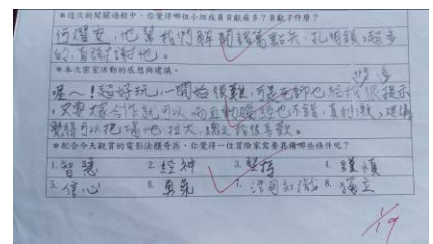 *這次的闖關過程中，你覺得哪位小組成員貢獻最多？貢獻了什麼？
何耀安，他幫我們解開諸葛亮兵、孔明鎖，超多
的，真謝謝他。
*本次密室活動的感想與建議。
喔～！超好玩，一開始很難，可是老師也給我很多提示
，只要大家合作就可以，而且動腦經也不錯，真刺激，建議
覺得可以把場地拉大，總之我很喜歡。
*配合今天觀賞的電影法櫃奇兵，你覺得一位冒險家需要具備哪些條件呢？
1.智慧 2.經神 3.堅持 4.謹慎
5.信心 6.勇氣 7.活用知識 8.獨立
1/19